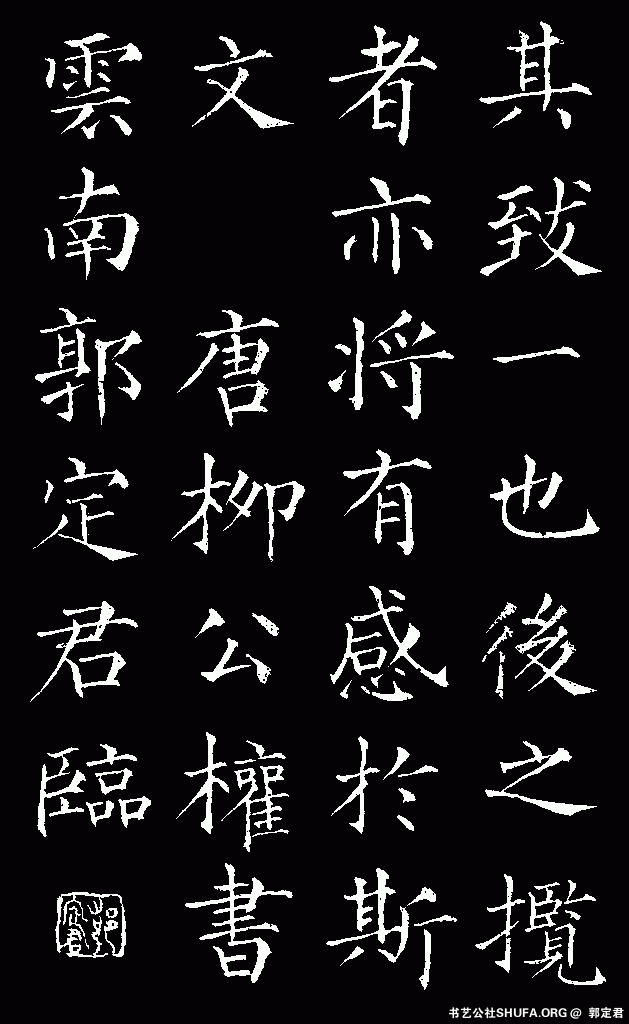 其致一也後之攬
者亦將有感於斯
文 唐柳公權書
雲南郭定君臨
书艺公社SHUFA.ORG @ 郭定君